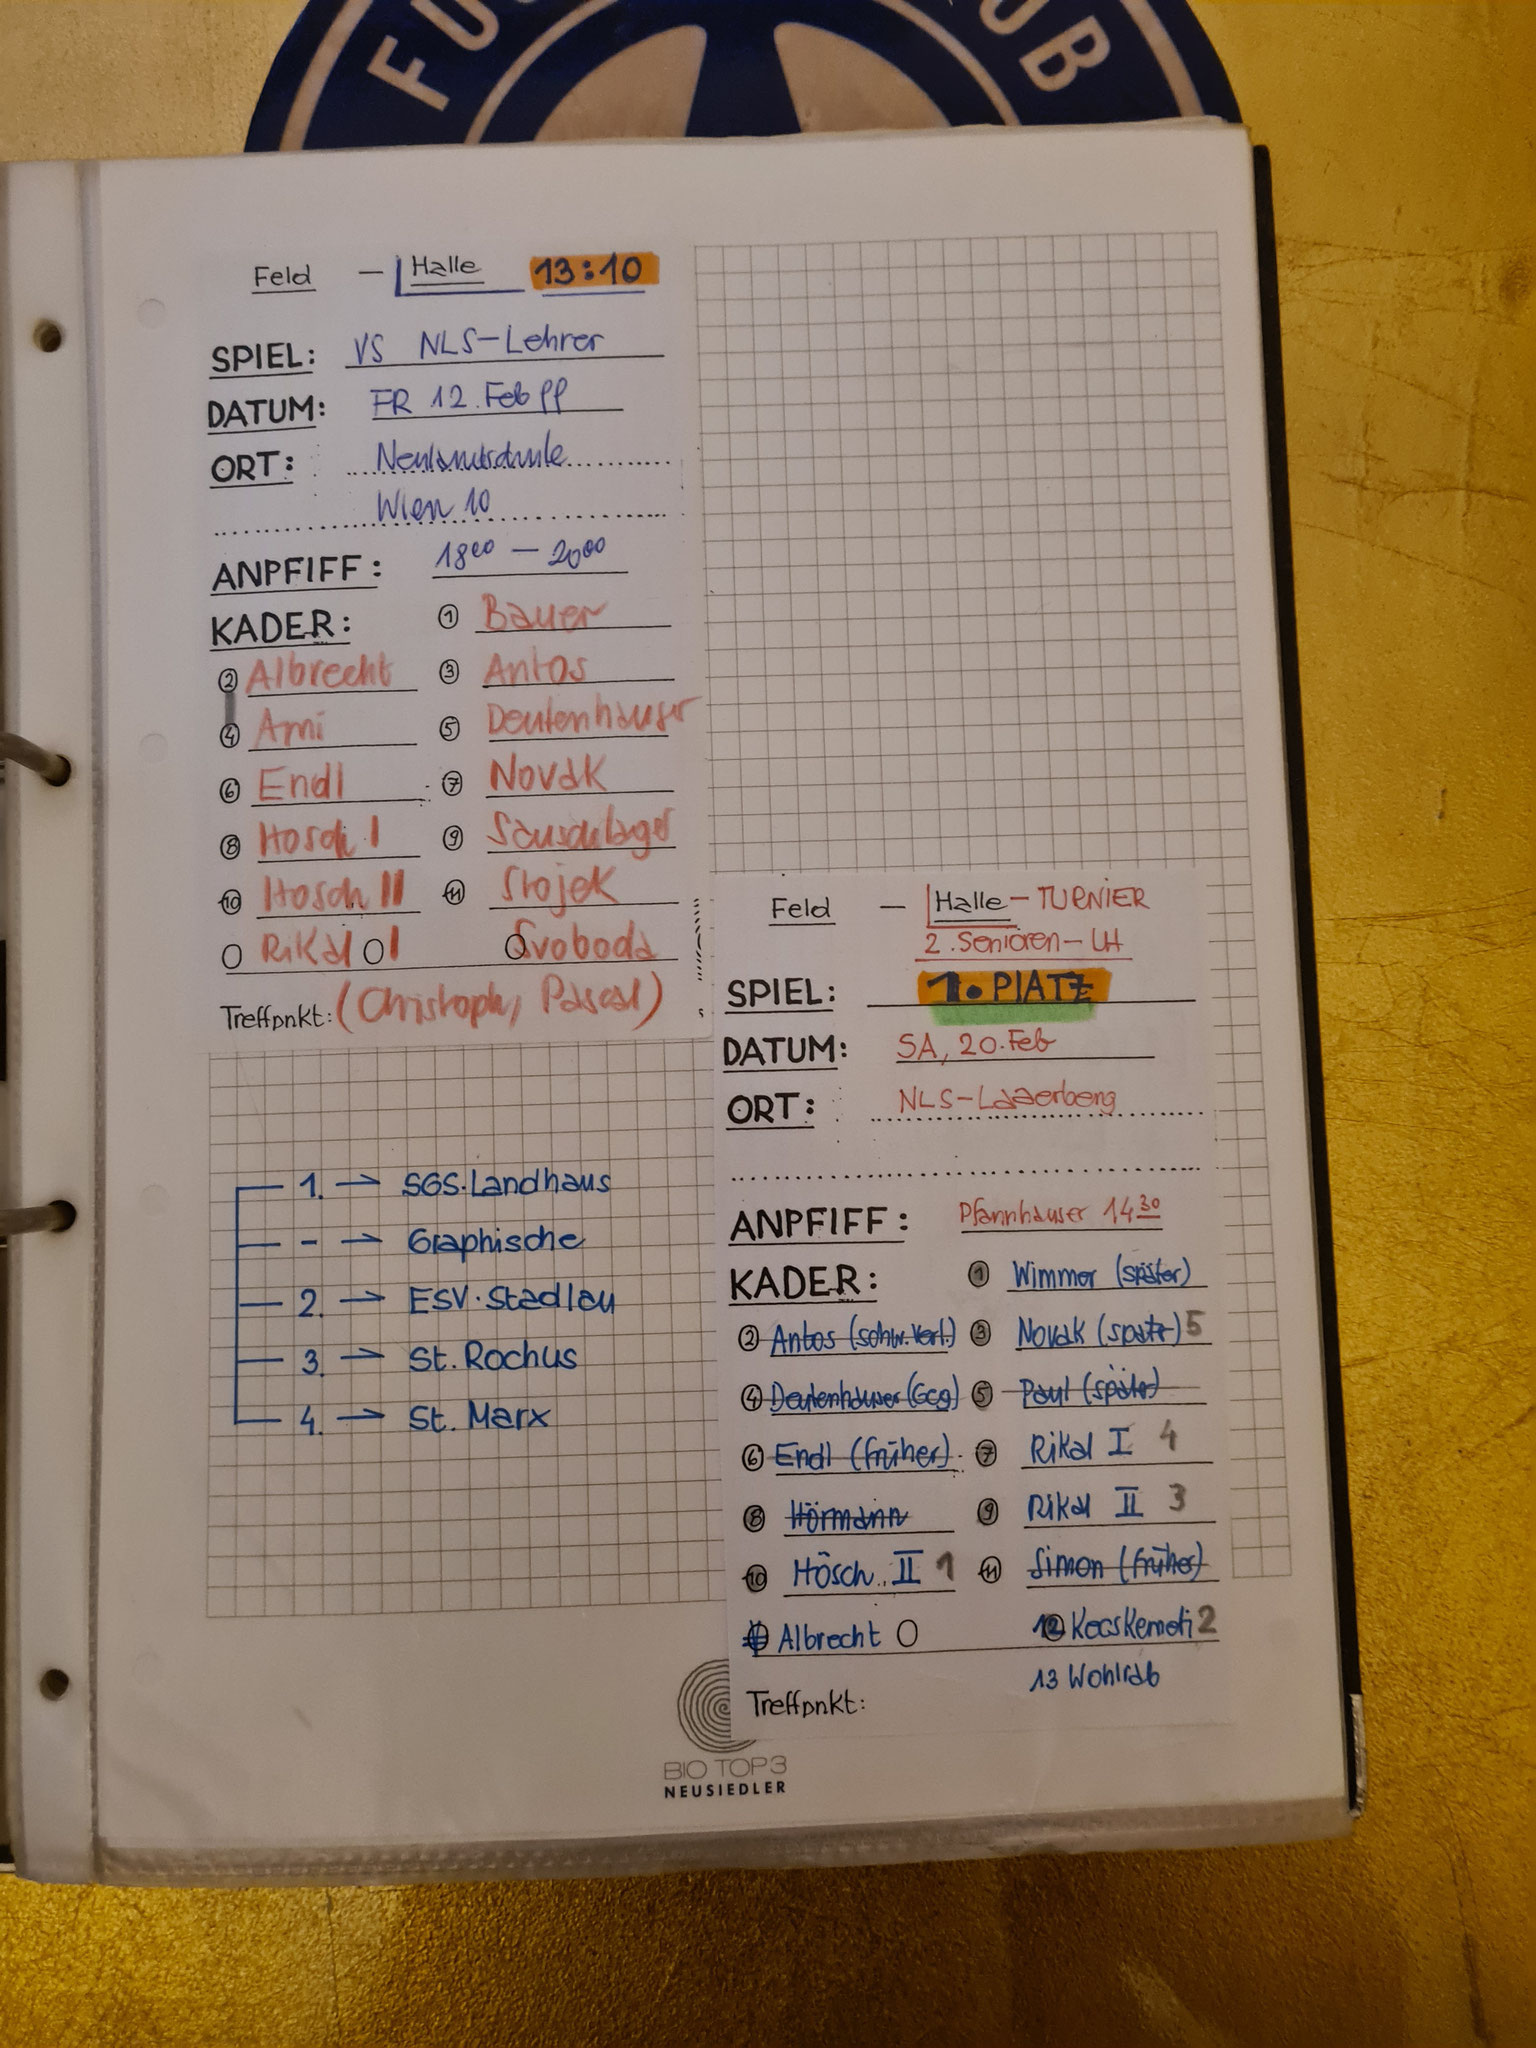 Feld – Halle 13:10
SPIEL: VS NLS-Lehrer
DATUM: FR 12. Feb 99
ORT: Neulandschule
Wien 10
ANPFIFF: 18⁰⁰ – 20⁰⁰
KADER: 1 Bauer
2 Albrecht 3 Antos
4 Ami 5 Deutenhauser
6 Endl 7 Novak
8 Hösch I 9 Sauschlager
10 Hösch II 11 Stojek
Rikal I Svoboda
Treffpnkt: (Christoph, Pascal)
1. → SGS. Landhaus
- → Graphische
2. → ESV. Stadlau
3. → St. Rochus
4. → St. Marx
Feld – Halle – TURNIER
2. Senioren – LH
SPIEL: 1. PLATZ
DATUM: SA, 20. Feb
ORT: NLS-Laaerberg
ANPFIFF: Pfannhauser 14³⁰
KADER: 1 Wimmer (später)
2 Antos (schw. Verl.) 3 Novak (später) 5
4 Deutenhauser (Geg) 5 Paul (später)
6 Endl (früher) 7 Rikal I 4
8 Hörmann 9 Rikal II 3
10 Hösch II 1 11 Simon (früher)
Albrecht 12 Kecskemeti 2
13 Wohlrab
Treffpnkt:
BIO TOP 3
NEUSIEDLER